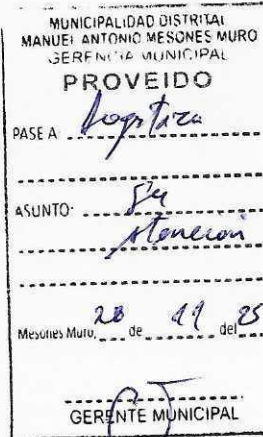 MUNICIPALIDAD DISTRITAL
MANUEL ANTONIO MESONES MURO
GERENCIA MUNICIPAL
PROVEIDO
PASE A: Logistica
ASUNTO: Su
Atencion
Mesones Muro, 28 de 11 del 25
GERENTE MUNICIPAL